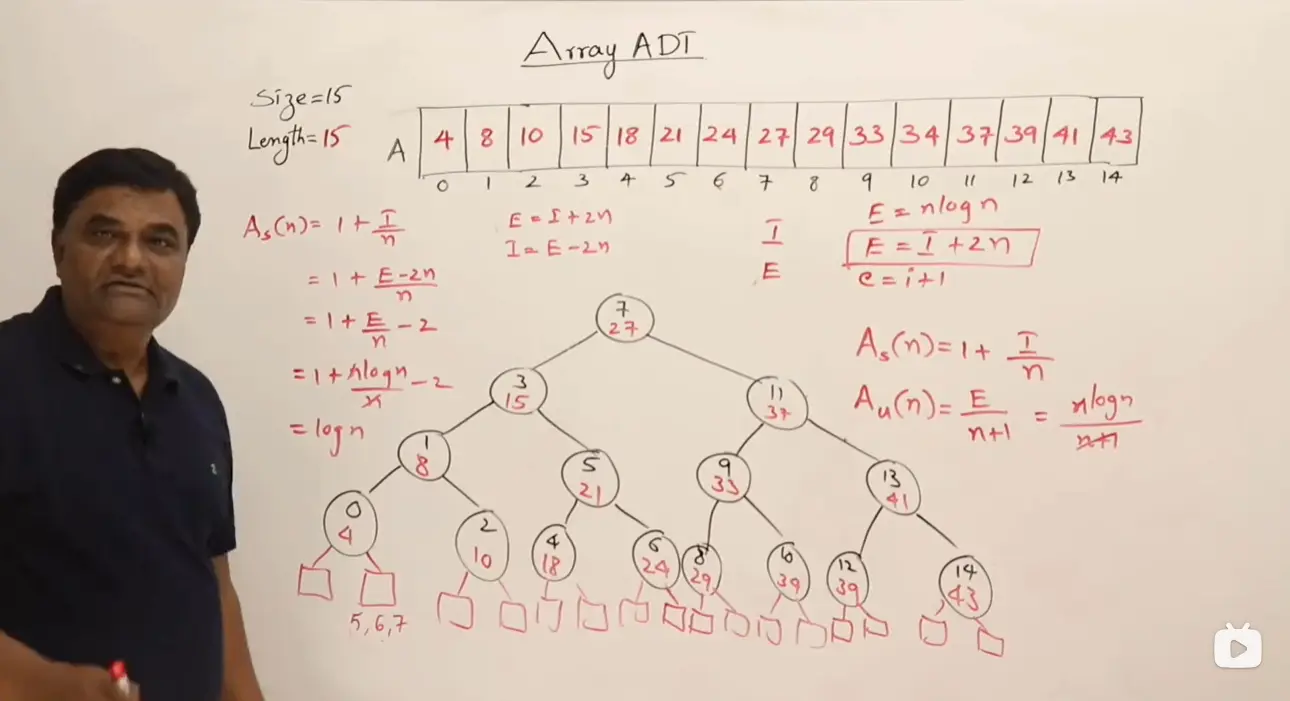 Array ADT
Size=15
Length=15
A 4 8 10 15 18 21 24 27 29 33 34 37 39 41 43
0 1 2 3 4 5 6 7 8 9 10 11 12 13 14
As(n)= 1+ I/n
= 1+ E-2n/n
= 1+ E/n - 2
= 1+ nlogn/n - 2
= logn
E = I+2n
I = E-2n
I
E
E = nlogn
E = I+2n
e = i+1
As(n)= 1+ I/n
Au(n)= E/n+1 = nlogn/n+1
7
27
3
15
11
37
1
8
5
21
9
33
13
41
0
4
2
10
4
18
6
24
8
29
6
39
12
39
14
43
5,6,7